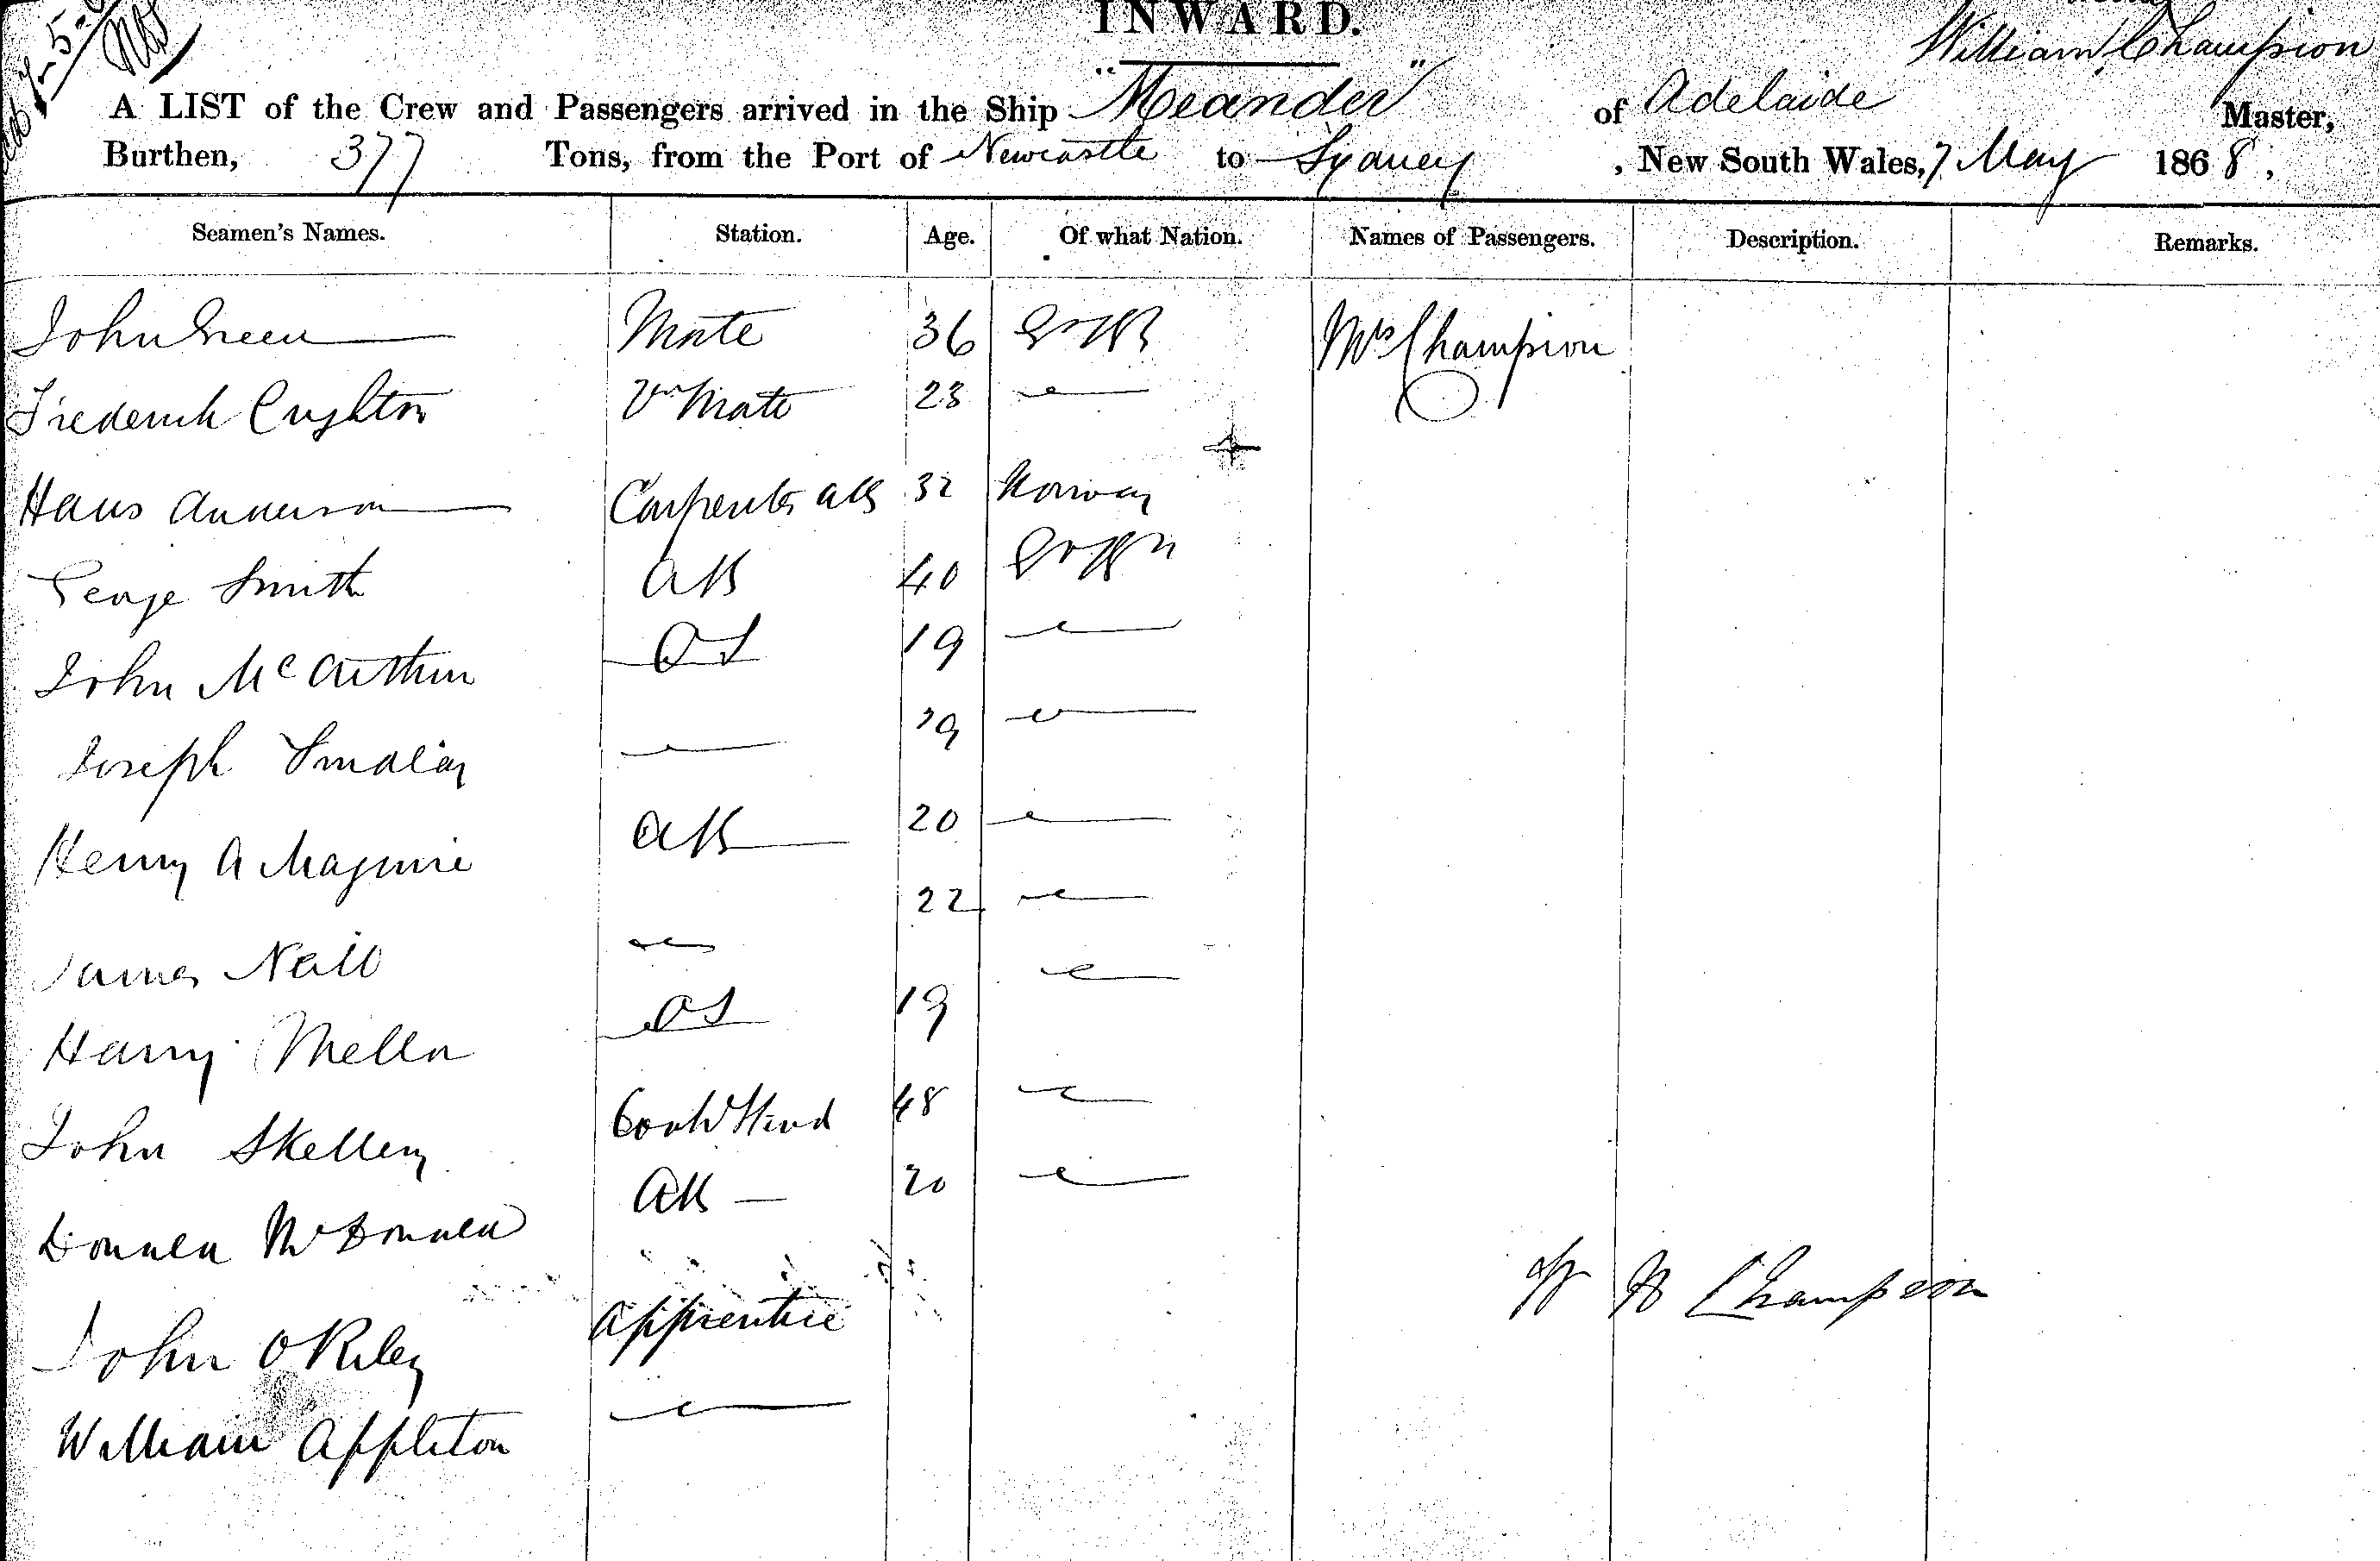 INWARD.
William Champion
A LIST of the Crew and Passengers arrived in the Ship "Meander" of Adelaide Master,
Burthen, 377 Tons, from the Port of Newcastle to Sydney, New South Wales, 7 May 1868,
Seamen's Names. Station. Age. Of what Nation. Names of Passengers. Description. Remarks.
John Green Mate 36 Mrs Champion
Frederick Mate 23
Hans Anderson Carpenter AB 32 Norway
George Smith AB 40
John McArthur OS 19
Joseph 19
Henry A Maguire AB 20
James Neill 22
Harry Mellor OS 19
John Skellery 48
Donald McDonald AB 20
W Champion
John O Riley Apprentice
William Appleton